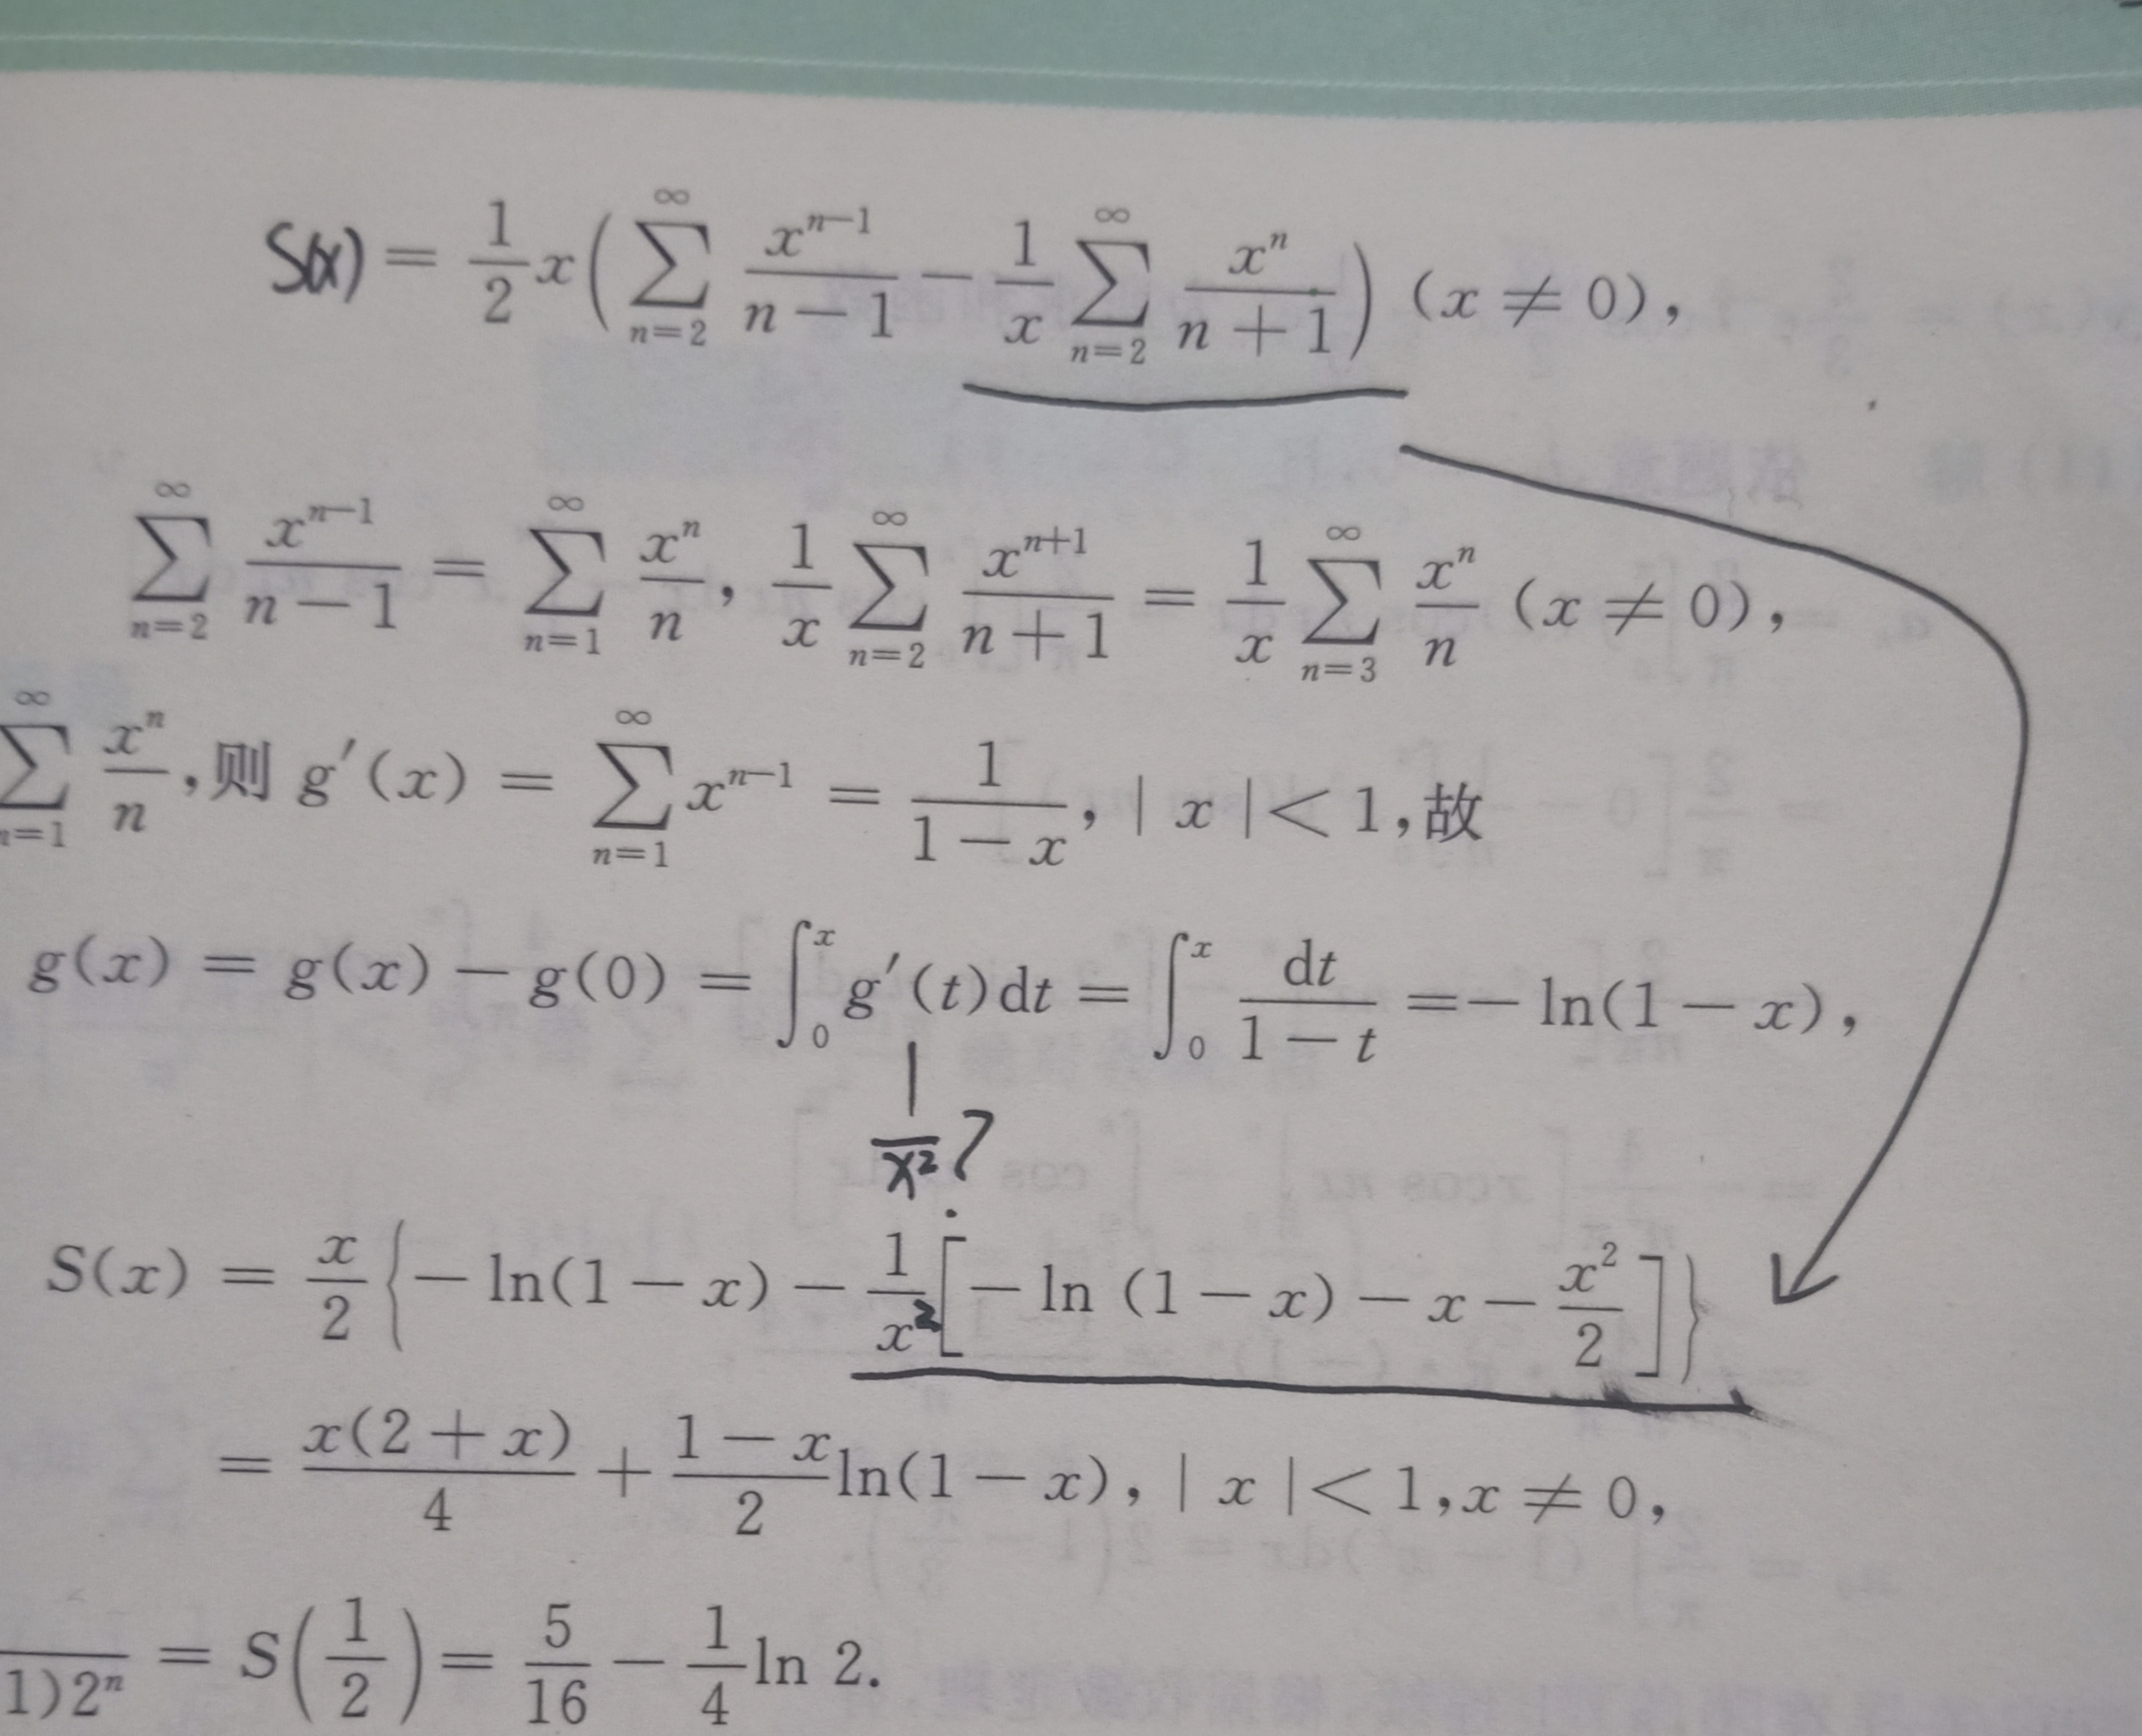 S(x) = \frac{1}{2}x\left(\sum_{n=2}^{\infty}\frac{x^{n-1}}{n-1} - \frac{1}{x}\sum_{n=2}^{\infty}\frac{x^n}{n+1}\right)(x ≠ 0),
\sum_{n=2}^{\infty}\frac{x^{n-1}}{n-1} = \sum_{n=1}^{\infty}\frac{x^n}{n}, \frac{1}{x}\sum_{n=2}^{\infty}\frac{x^{n+1}}{n+1} = \frac{1}{x}\sum_{n=3}^{\infty}\frac{x^n}{n} (x ≠ 0),
\sum_{n=1}^{\infty}\frac{x^n}{n},则 g′(x) = \sum_{n=1}^{\infty}x^{n-1} = \frac{1}{1-x}, | x |< 1,故
g(x) = g(x) - g(0) = \int_0^x g′(t)dt = \int_0^x \frac{dt}{1-t} =- ln(1-x),
\frac{1}{x^2}?
S(x) = \frac{x}{2}\left\{- ln(1-x) - \frac{1}{x^2}\left[- ln (1-x) - x - \frac{x^2}{2}\right]\right\}
= \frac{x(2+x)}{4} + \frac{1-x}{2}ln(1-x), | x |< 1,x ≠ 0,
1)2^n = S\left(\frac{1}{2}\right) = \frac{5}{16} - \frac{1}{4}ln 2.